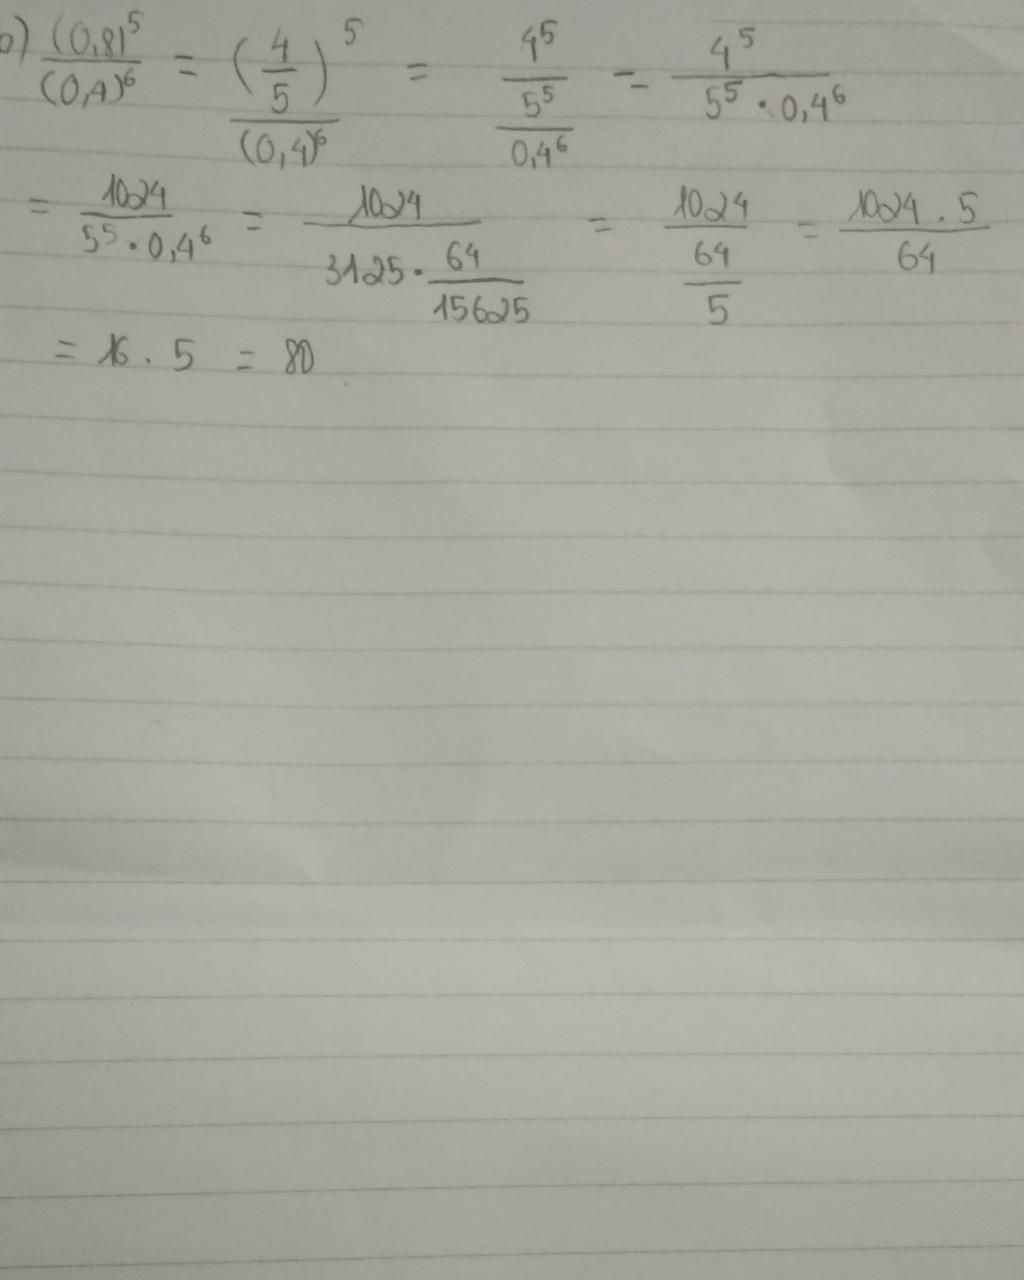 b) (0,8)^5/(0,4)^6 = (4/5)^5/(0,4)^6 = 4^5/5^5/0,4^6 = 4^5/5^5 · 0,4^6
= 1024/5^5 · 0,4^6 = 1024/3125 · 64/15625 = 1024/64/5 = 1024 . 5/64
= 16 . 5 = 80